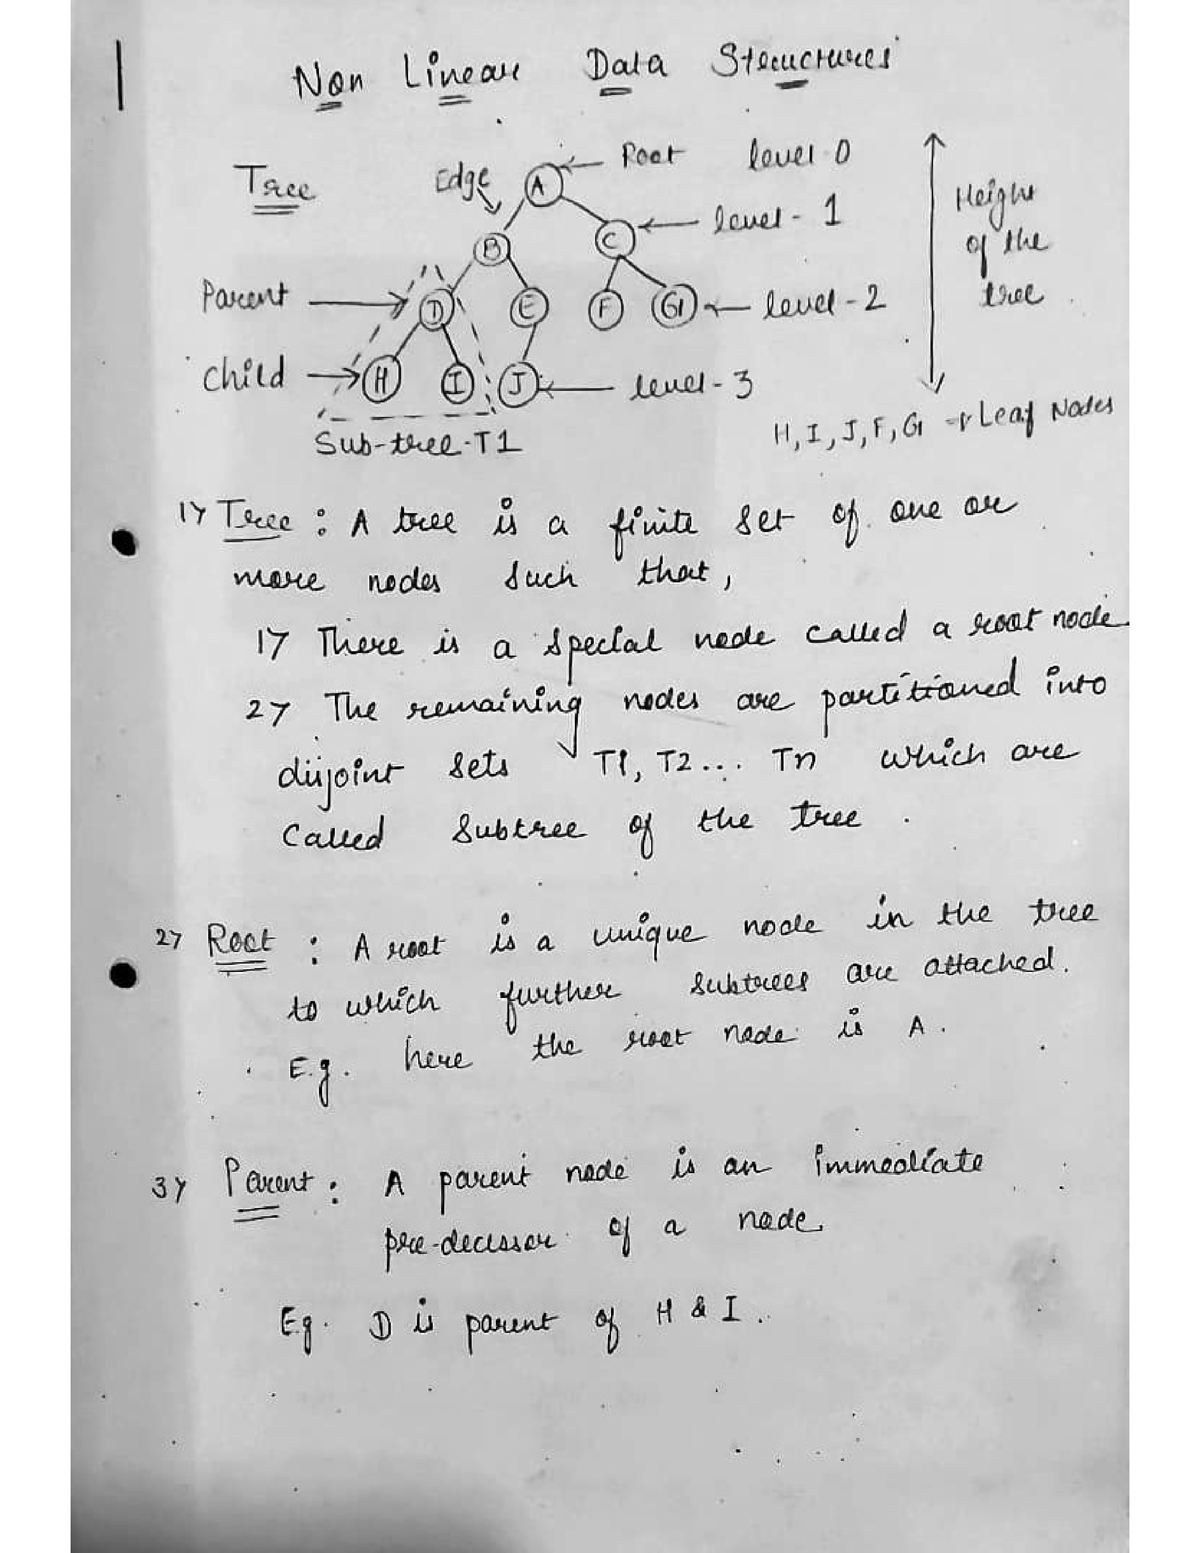 Non Linear Data Structures
Tree
Edge
A
Root
level-0
B
C
level-1
Height of the tree
Parent
D
E
F
G
level-2
Child
H
I
J
level-3
Sub-tree-T1
H, I, J, F, G → Leaf Nodes
1) Tree : A tree is a finite set of one or
more nodes such that,
1) There is a special node called a root node.
2) The remaining nodes are partitioned into
disjoint sets T1, T2... Tn which are
called subtree of the tree.
2) Root : A root is a unique node in the tree
to which further subtrees are attached.
E.g. here the root node is A.
3) Parent : A parent node is an immediate
pre-decessor of a node.
Eg. D is parent of H & I.